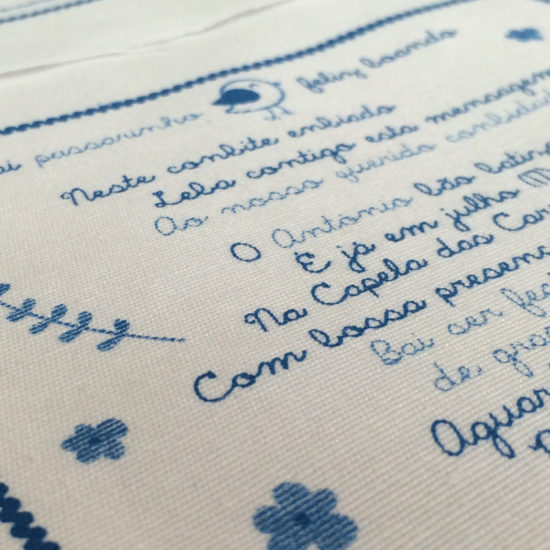 ai passarinho feliz boando
Neste combite enbiado
Leba contigo esta mensagem
Ao nosso querido combidad
O Antonio bão batiz
É já em julho
Na Capela das Car
Com bossa presenç
Bai ser fes
de gra
Aguar